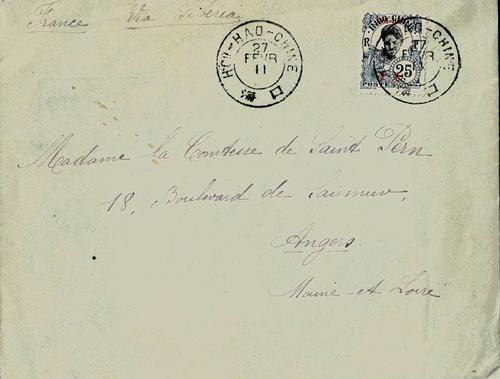 France Via Siberia
HOI-HAO-CHINE
27
FEVR
11
口
INDO-CHINE
R F
25
POSTES
HOI-HAO-CHINE
27
FEVR
11
口
Madame la Comtesse de Saint Pern
18, Boulevard de Saumur,
Angers.
Maine-et Loire